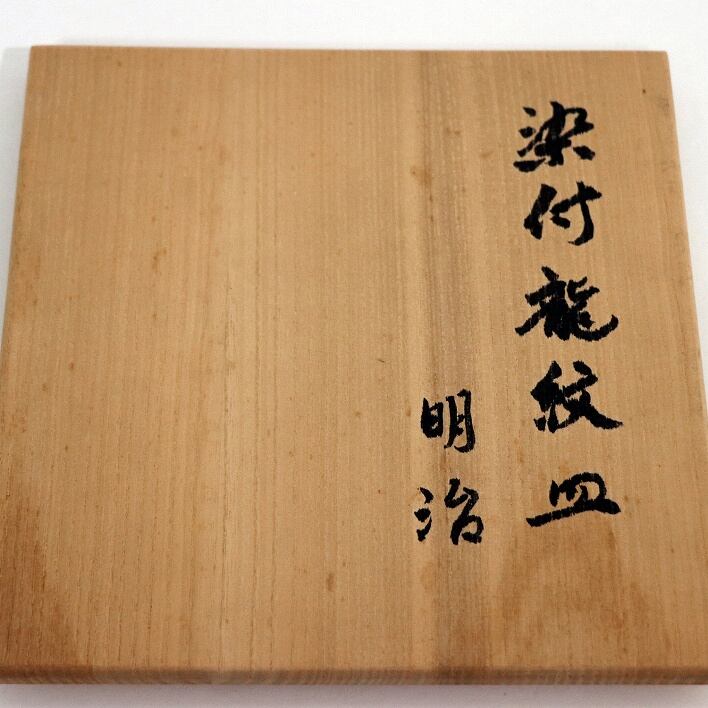 染付龍紋皿
明治